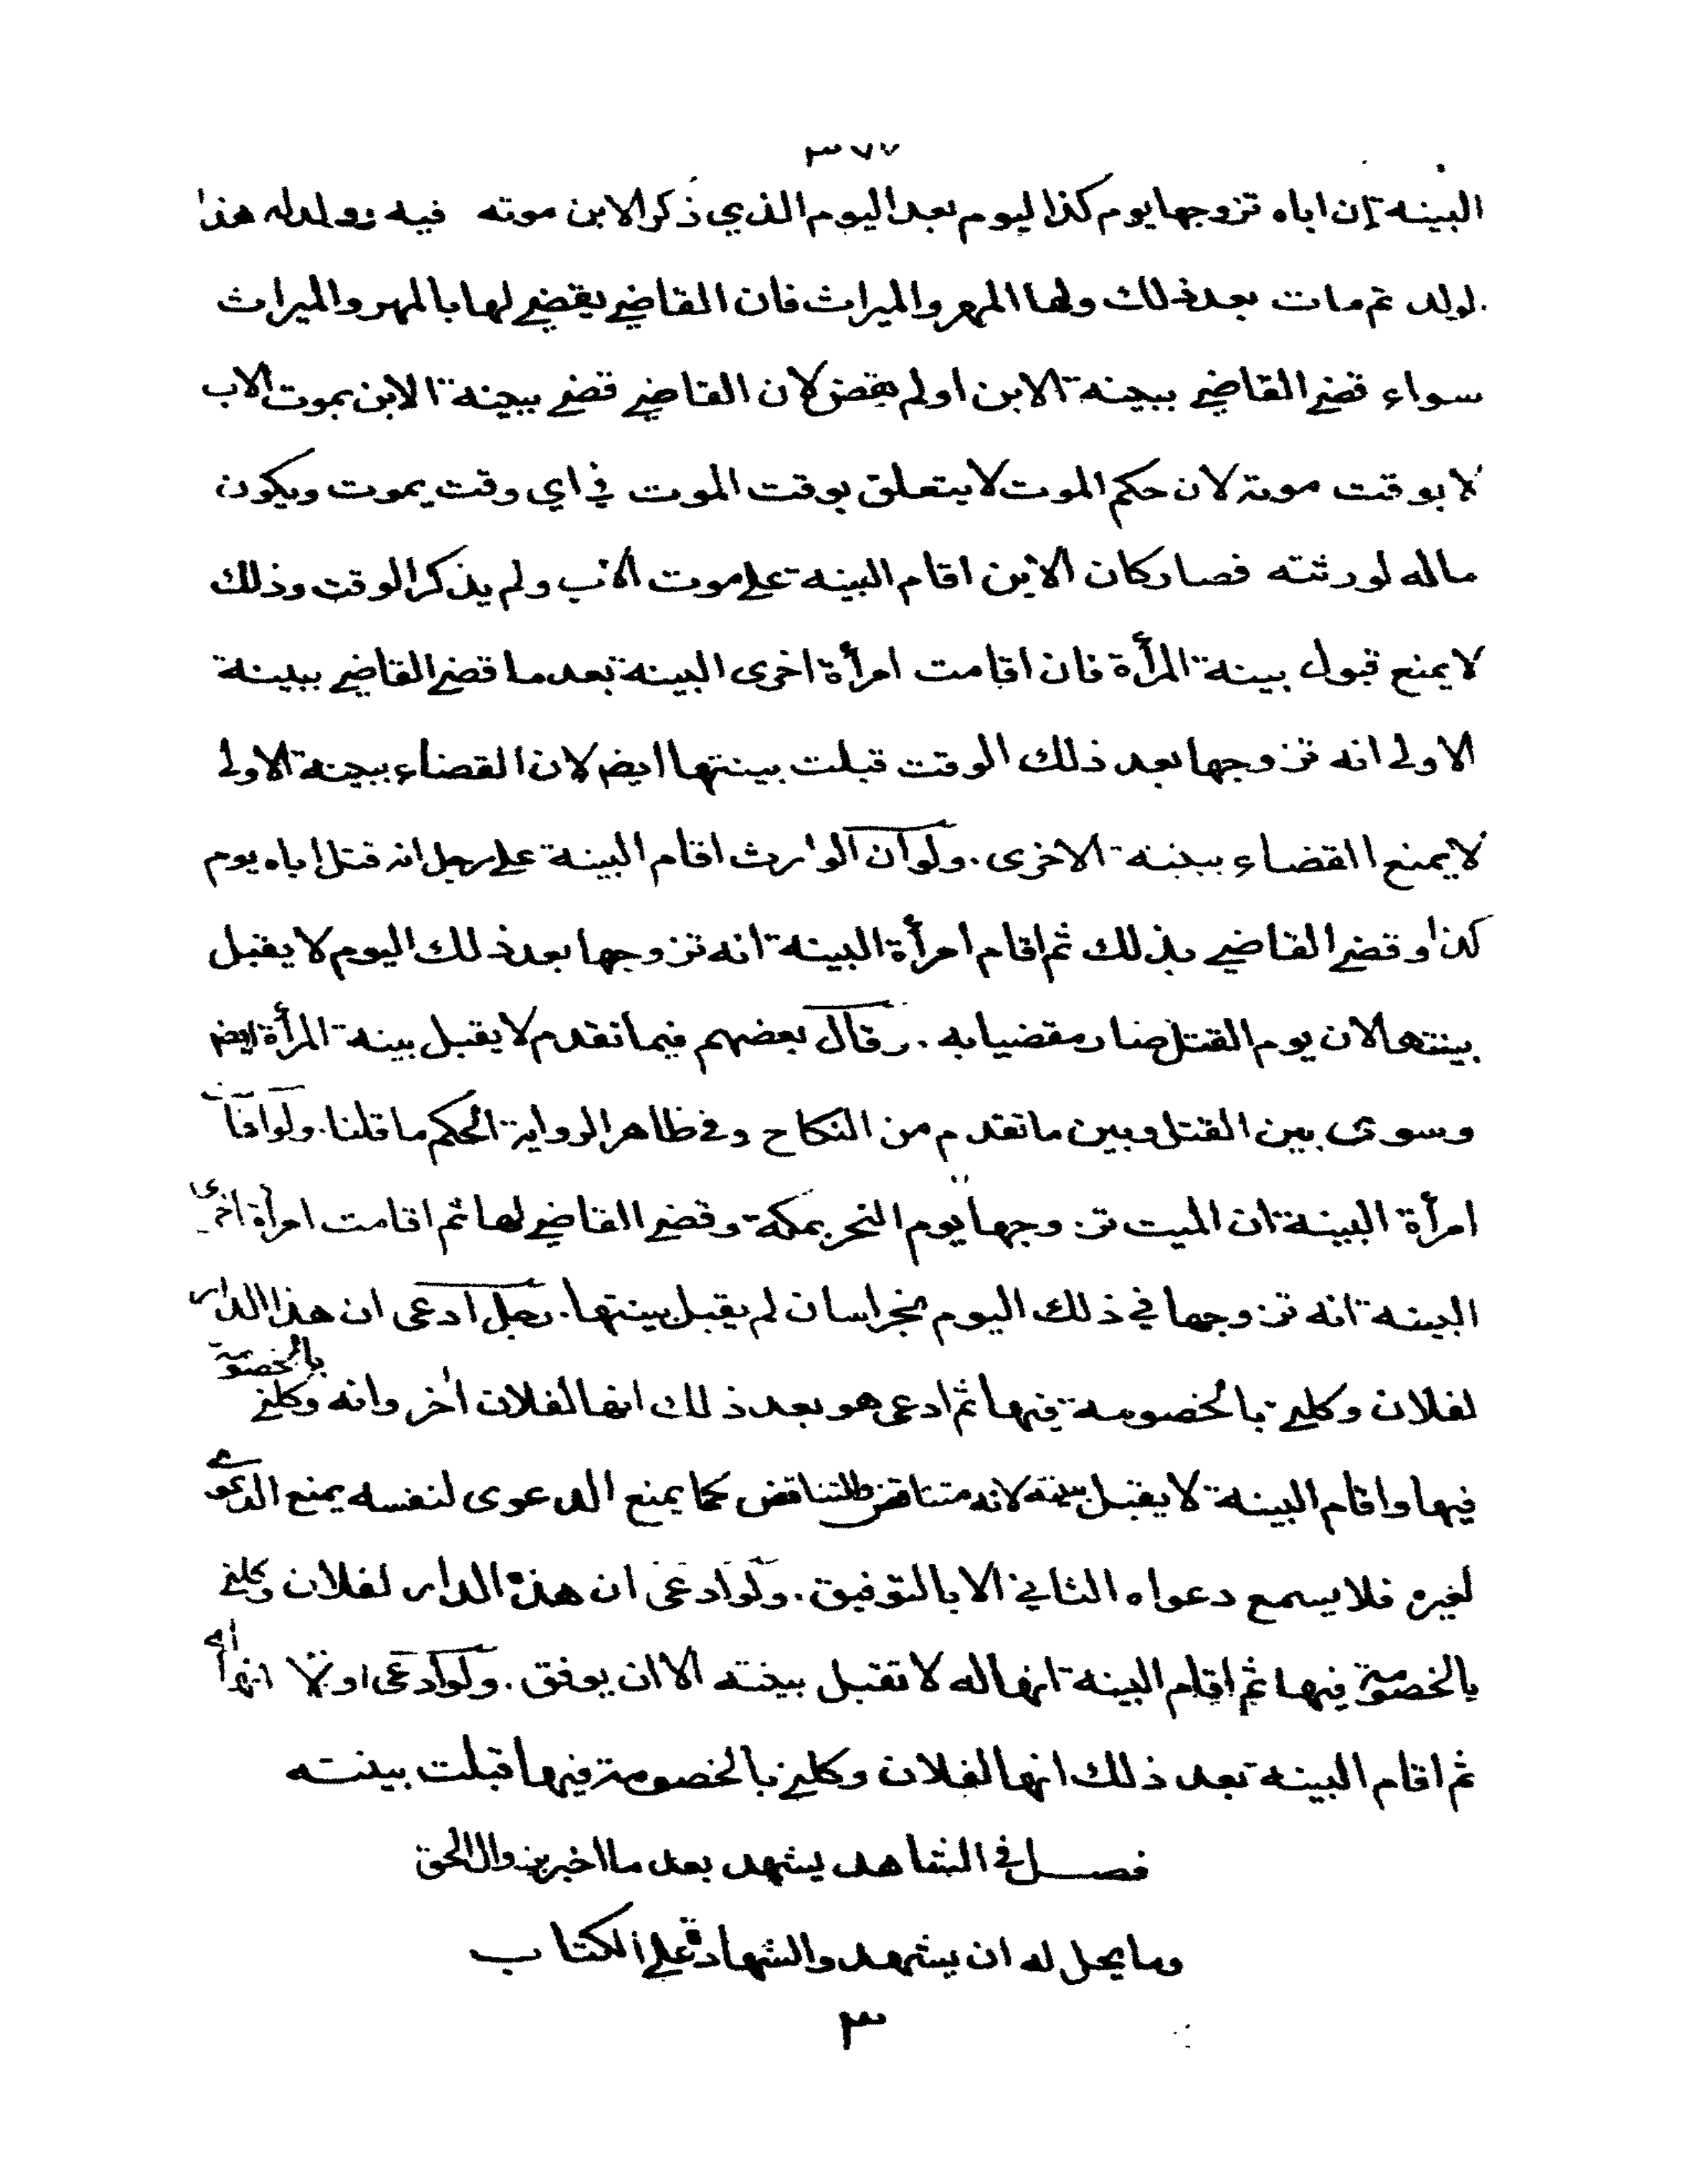 ٣٧٧
البينة إن اباه تزوجها يوم كذا ليوم بعد اليوم الذي ذكر الابن موته فيه وولد له هذا
لولد ثم مات بعد ذلك ولها المهر والميراث فان القاضي يقضي لها بالمهر والميراث
سواء قضى القاضي ببينة الابن او لم يقض لان القاضي قضى ببينة الابن بموت الاب
لا بوقت موته لان حكم الموت لا يتعلق بوقت الموت في اي وقت يموت ويكون
ماله لورثته فصار كان الابن اقام البينة على موت الاب ولم يذكر الوقت وذلك
لا يمنع قبول بينة المرأة فان اقامت امرأة اخرى البينة بعد ما قضى القاضي ببينة
الاولى انه تزوجها بعد ذلك الوقت قبلت بينتها ايض لان القضاء ببينة الاولى
لا يمنع القضاء ببينة الاخرى . ولو ان الوارث اقام البينة على رجل انه قتل اباه يوم
كذا وقضى القاضي بذلك ثم اقام امرأة البينة انه تزوجها بعد ذلك اليوم لا يقبل
بينتها لان يوم القتل صار مقضيا به . وقال بعضهم فيما تقدم لا يقبل بينة المرأة ايض
وسوى بين القتل وبين ما تقدم من النكاح وفي ظاهر الرواية الحكم ما قلنا . ولو اقامت
امرأة البينة ان الميت تزوجها يوم النحر بمكة وقضى القاضي لها ثم اقامت امرأة اخرى
البينة انه تزوجها في ذلك اليوم بخراسان لم يقبل بينتها . رجل ادعى ان هذا الدار
لفلان وكلني بالخصومة فيها ثم ادعى هو بعد ذلك انها لفلان اخر وانه وكلني بالخصومة
فيها واقام البينة لا يقبل بينته لانه متناقض والتناقض كما يمنع الدعوى لنفسه يمنع الدعوى
لغيره فلا يسمع دعواه الثاني الا بالتوفيق . ولو ادعى ان هذه الدار لفلان وكلني
بالخصومة فيها ثم اقام البينة انها له لا تقبل بينته الا ان يوفق . ولو ادعى اولا انها له
ثم اقام البينة بعد ذلك انها لفلان وكلني بالخصومة فيها قبلت بينته
فصل في الشاهد يشهد بعد ما اخبر بزوال الحق
وما يحل له ان يشهد والشهادة على الكتاب
٣